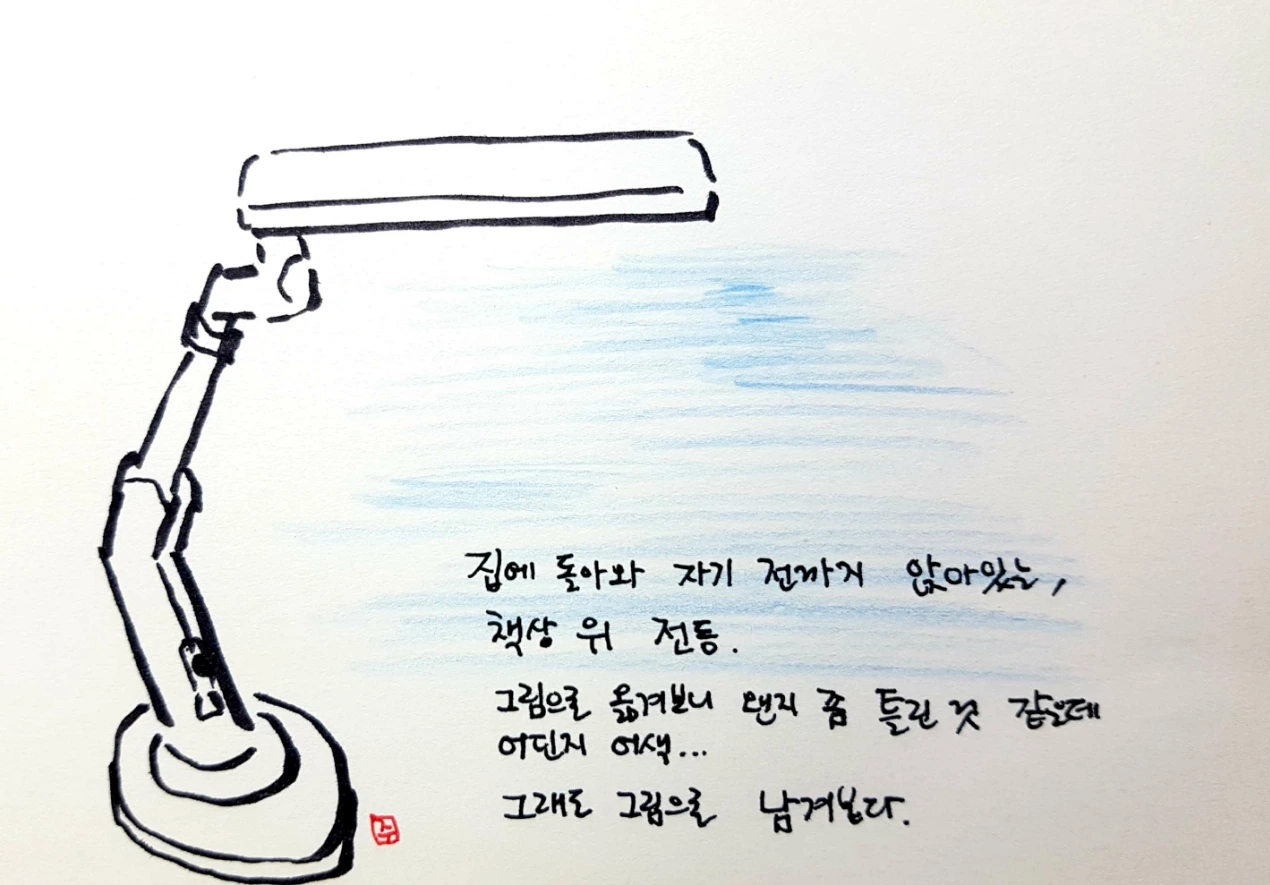 집에 돌아와 자기 전까지 앉아있는,
책상 위 전등.
그림으로 옮겨보니 왠지 좀 틀린 것 같은데
어딘지 어색...
그래도 그림으로 남겨본다.